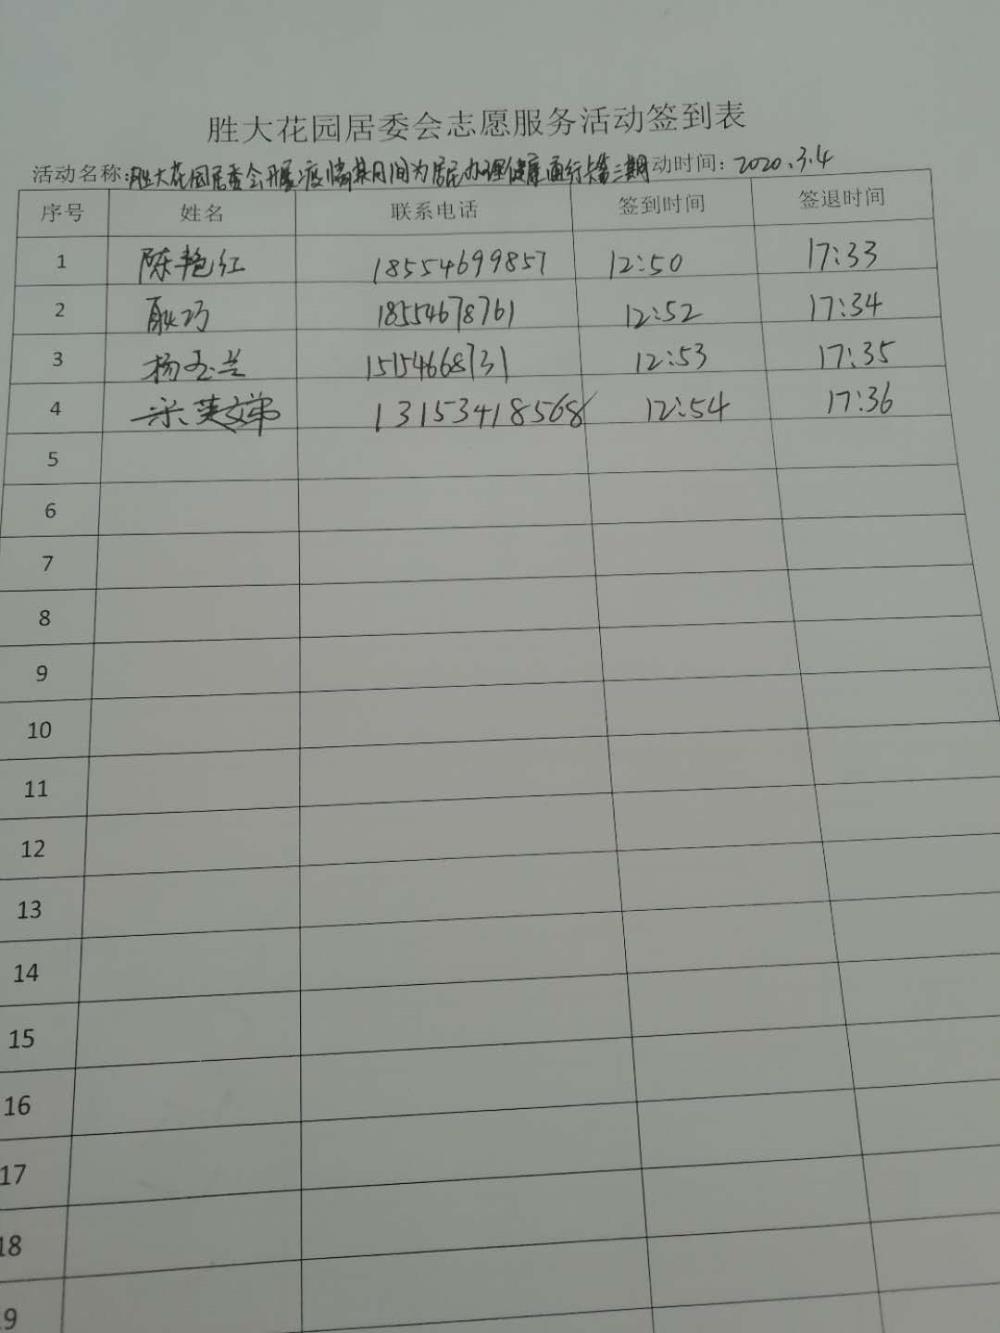 胜大花园居委会志愿服务活动签到表
活动名称:胜大花园居委会开展疫情期间为居民办理健康通行卡第三期 动时间: 2020.3.4
序号 姓名 联系电话 签到时间 签退时间
1 陈艳红 18554699857 12:50 17:33
2 耿巧 18554678761 12:52 17:34
3 杨玉兰 15154668731 12:53 17:35
4 宋英娣 13153418568 12:54 17:36
5
6
7
8
9
10
11
12
13
14
15
16
17
18
19